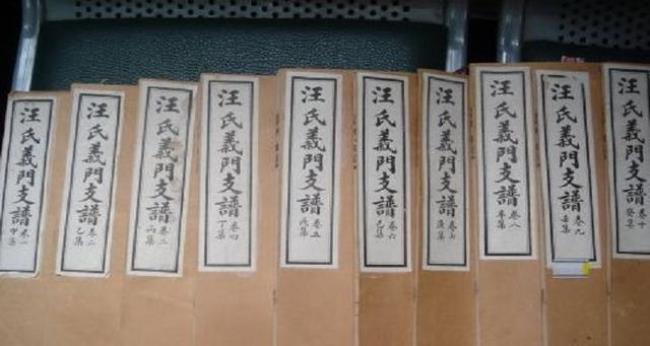 汪氏義門支譜 卷一 甲集
汪氏義門支譜 卷二 乙集
汪氏義門支譜 卷三 丙集
汪氏義門支譜 卷四 丁集
汪氏義門支譜 卷五 戊集
汪氏義門支譜 卷六 己集
汪氏義門支譜 卷七 庚集
汪氏義門支譜 卷八 辛集
汪氏義門支譜 卷九 壬集
汪氏義門支譜 卷十 癸集